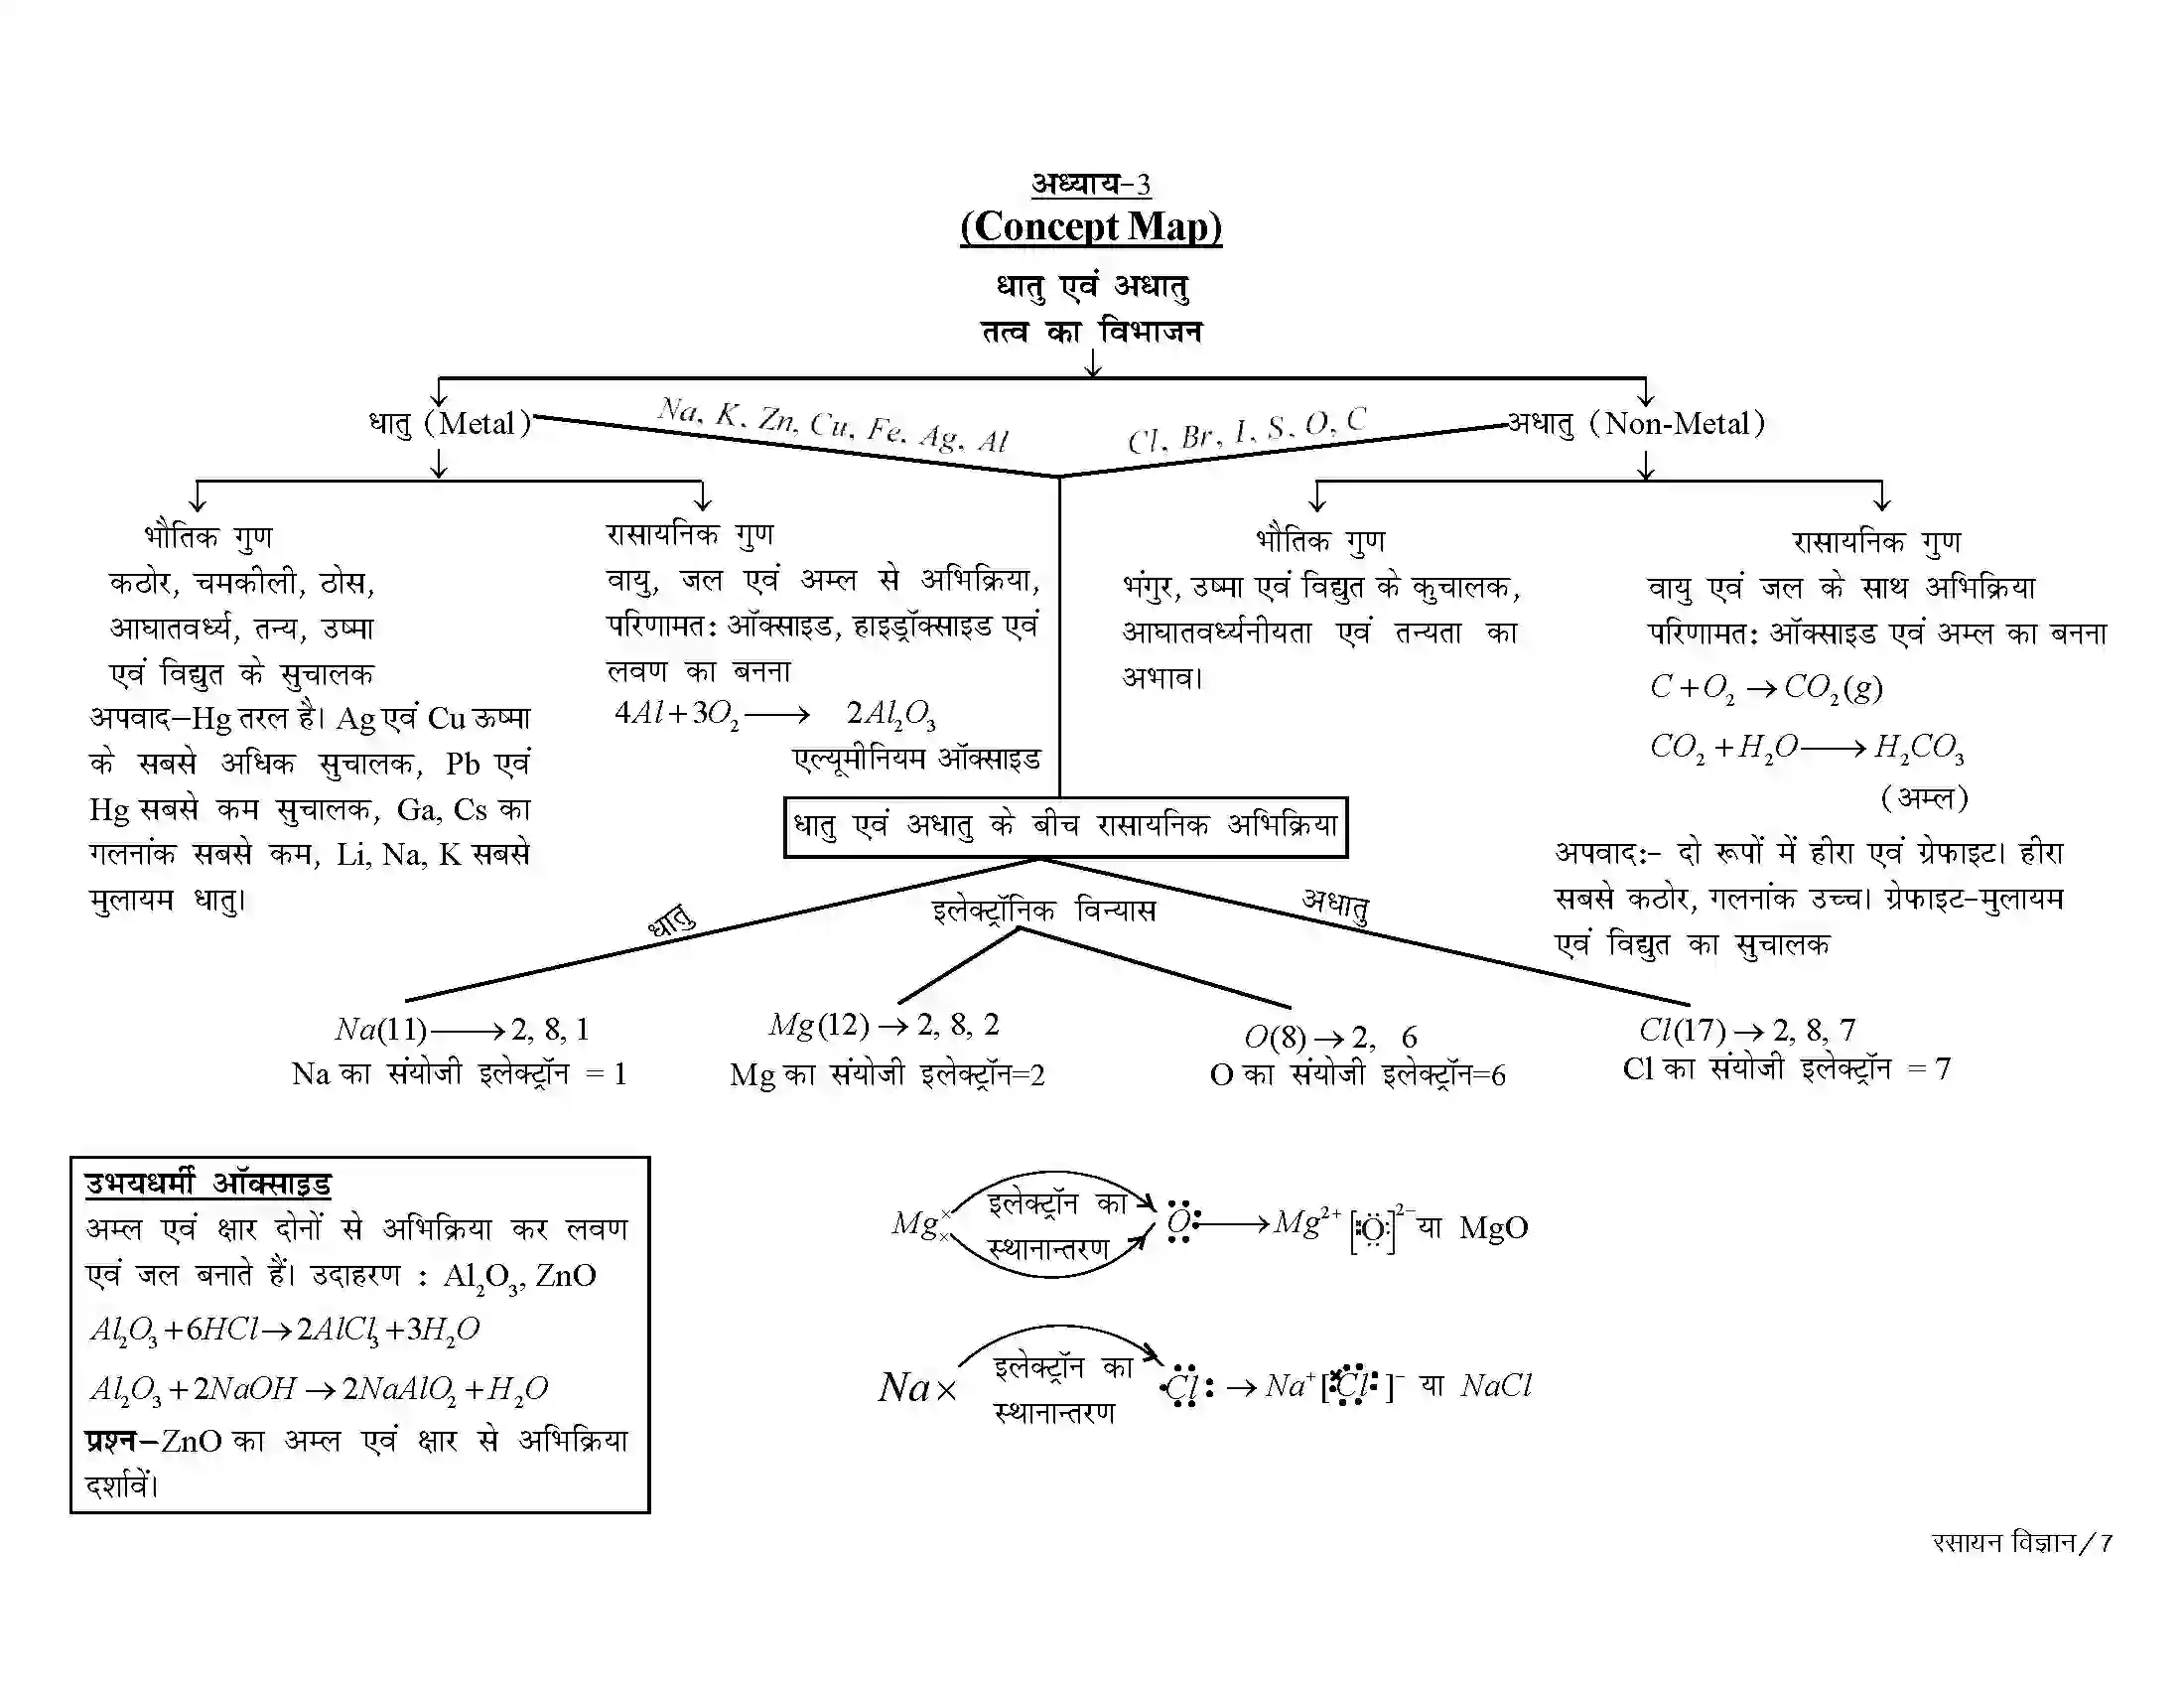 अध्याय-3
(Concept Map)
धातु एवं अधातु
तत्व का विभाजन
धातु (Metal)
Na, K, Zn, Cu, Fe, Ag, Al
Cl, Br, I, S, O, C
अधातु (Non-Metal)
भौतिक गुण
कठोर, चमकीली, ठोस,
आघातवर्ध्य, तन्य, उष्मा
एवं विद्युत के सुचालक
अपवाद–Hg तरल है। Ag एवं Cu ऊष्मा
के सबसे अधिक सुचालक, Pb एवं
Hg सबसे कम सुचालक, Ga, Cs का
गलनांक सबसे कम, Li, Na, K सबसे
मुलायम धातु।
रासायनिक गुण
वायु, जल एवं अम्ल से अभिक्रिया,
परिणामत: ऑक्साइड, हाइड्रॉक्साइड एवं
लवण का बनना
4Al+3O₂⟶ 2Al₂O₃
एल्यूमीनियम ऑक्साइड
भौतिक गुण
भंगुर, उष्मा एवं विद्युत के कुचालक,
आघातवर्ध्यनीयता एवं तन्यता का
अभाव।
रासायनिक गुण
वायु एवं जल के साथ अभिक्रिया
परिणामत: ऑक्साइड एवं अम्ल का बनना
C+O₂→CO₂(g)
CO₂+H₂O⟶H₂CO₃
(अम्ल)
अपवाद:- दो रूपों में हीरा एवं ग्रेफाइट। हीरा
सबसे कठोर, गलनांक उच्च। ग्रेफाइट-मुलायम
एवं विद्युत का सुचालक
धातु एवं अधातु के बीच रासायनिक अभिक्रिया
धातु
इलेक्ट्रॉनिक विन्यास
अधातु
Na(11)⟶2, 8, 1
Na का संयोजी इलेक्ट्रॉन = 1
Mg(12)→2, 8, 2
Mg का संयोजी इलेक्ट्रॉन=2
O(8)→2, 6
O का संयोजी इलेक्ट्रॉन=6
Cl(17)→2, 8, 7
Cl का संयोजी इलेक्ट्रॉन = 7
उभयधर्मी ऑक्साइड
अम्ल एवं क्षार दोनों से अभिक्रिया कर लवण
एवं जल बनाते हैं। उदाहरण : Al₂O₃, ZnO
Al₂O₃+6HCl→2AlCl₃+3H₂O
Al₂O₃+2NaOH→2NaAlO₂+H₂O
प्रश्न–ZnO का अम्ल एवं क्षार से अभिक्रिया
दर्शावें।
इलेक्ट्रॉन का
Mg×× O⟶Mg²⁺[O]²⁻या MgO
स्थानान्तरण
इलेक्ट्रॉन का
Na× Cl→Na⁺[Cl]⁻ या NaCl
स्थानान्तरण
रसायन विज्ञान/7